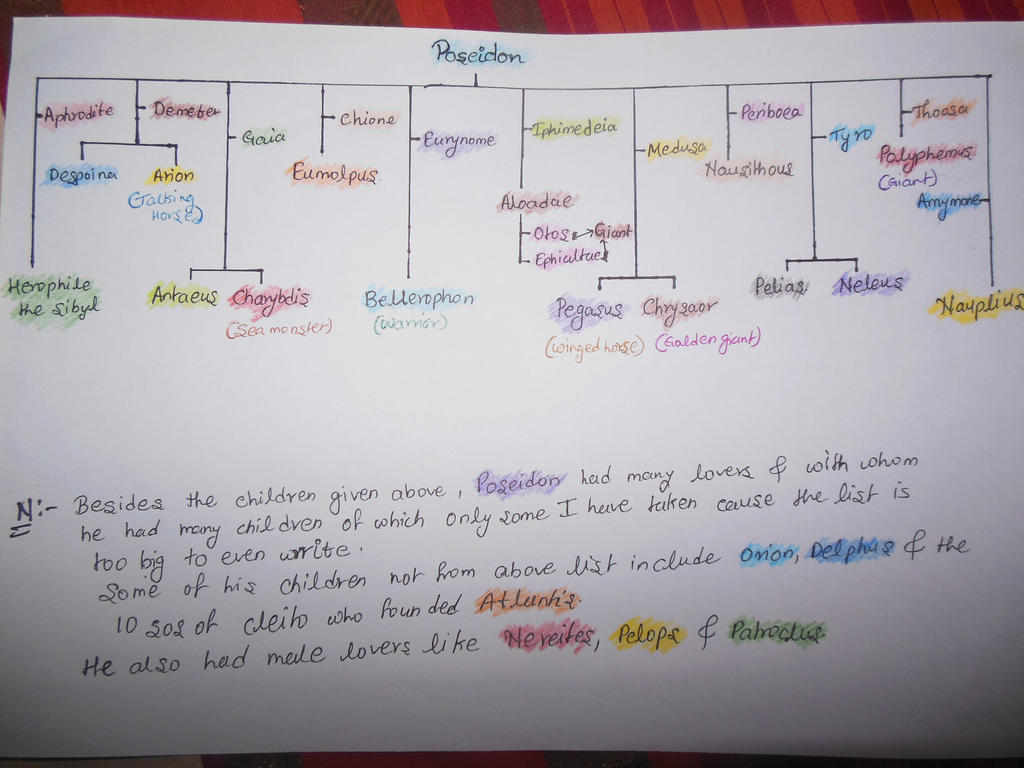 Poseidon
Aphrodite
Demeter
Gaia
Chione
Eurynome
Iphimedeia
Medusa
Periboea
Tyro
Thoosa
Despoina
Arion
(Talking
Horse)
Eumolpus
Nausithous
Polyphemus
(Giant)
Amymone
Aloadae
Otos → Giant
Ephialtae
Herophile
the Sibyl
Antaeus
Charybdis
(Sea monster)
Bellerophon
(warrior)
Pegasus
(winged horse)
Chrysaor
(Golden giant)
Pelias
Neleus
Nauplius
N:- Besides the children given above, Poseidon had many lovers & with whom
he had many children of which only some I have taken cause the list is
too big to even write.
Some of his children not from above list include Orion, Delphus & the
10 sos of cleito who founded Atlantis.
He also had male lovers like Nereites, Pelops & Patroclus.